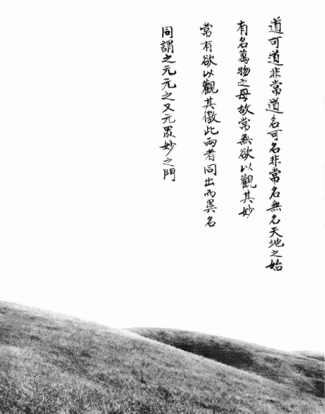 道可道非常道名可名非常名無名天地之始
有名萬物之母故常無欲以觀其妙
常有欲以觀其徼此兩者同出而異名
同謂之元元之又元眾妙之門